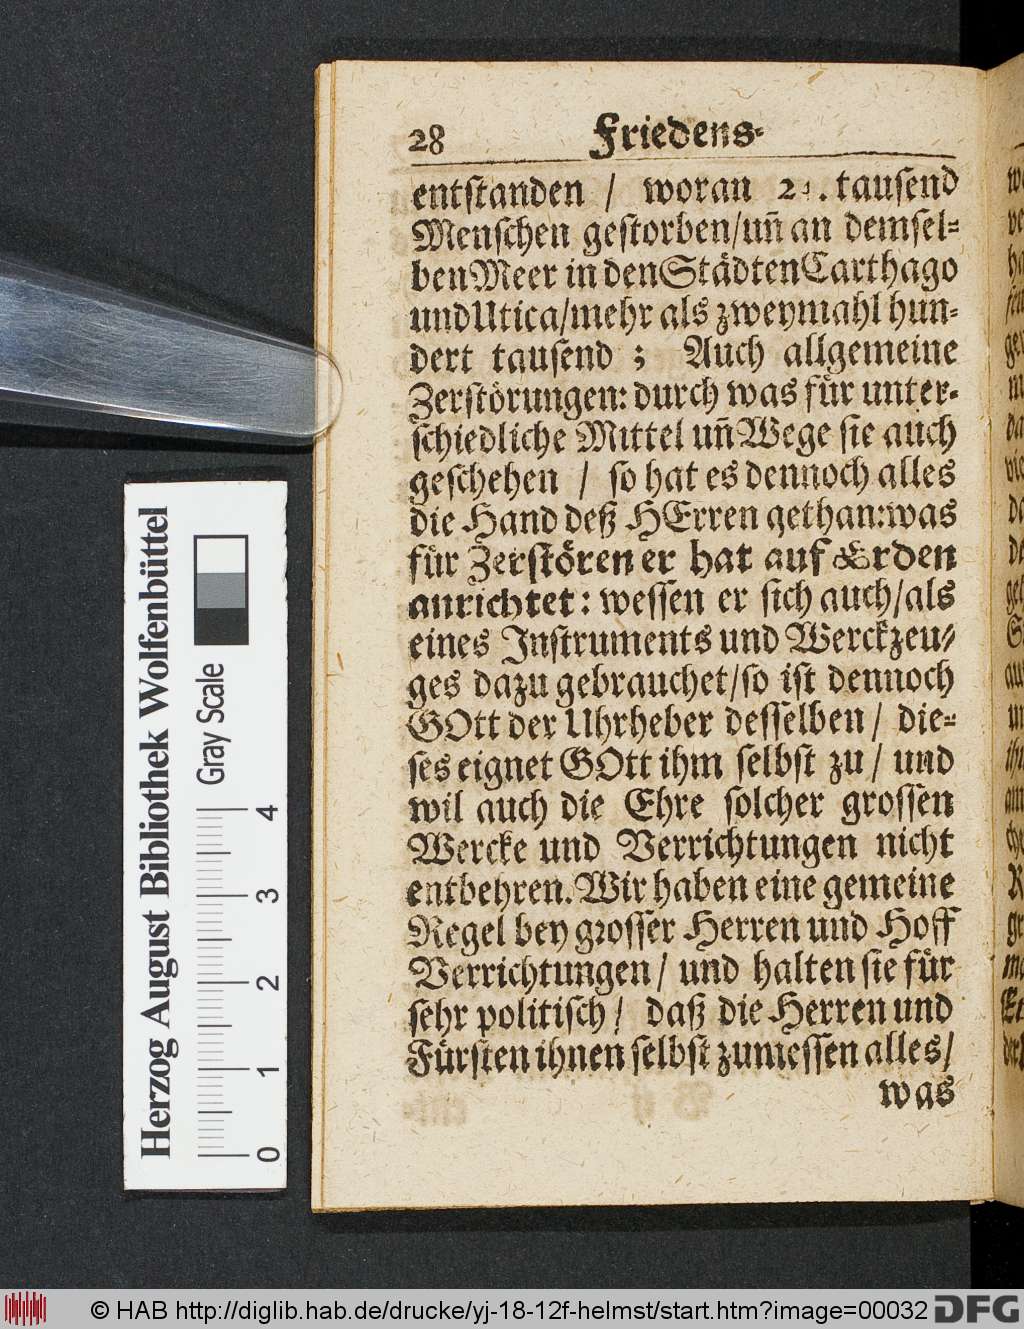 28 Friedens⸗
entſtanden / woran tauſend
Menſchen geſtorben/uñ an demſel⸗
ben Meer in den Städten Carthago
und Utica/mehr als zweymahl hun⸗
dert tauſend ; Auch allgemeine
Zerſtörungen: durch was für unter⸗
ſchiedliche Mittel uñ Wege ſie auch
geſchehen / ſo hat es dennoch alles
die Hand deß HErren gethan:was
für Zerſtören er hat auf Erden
anrichtet: weſſen er ſich auch/als
eines Inſtruments und Werckzeu⸗
ges dazu gebrauchet/ſo iſt dennoch
GOtt der Uhrheber deſſelben / die⸗
ſes eignet GOtt ihm ſelbſt zu / und
wil auch die Ehre ſolcher groſſen
Wercke und Verrichtungen nicht
entbehren. Wir haben eine gemeine
Regel bey groſſer Herren und Hoff
Verrichtungen / und halten ſie für
ſehr politiſch / daß die Herren und
Fürſten ihnen ſelbſt zumeſſen alles/
was
Herzog August Bibliothek Wolfenbüttel
Gray Scale
0 1 2 3 4
© HAB http://diglib.hab.de/drucke/yj-18-12f-helmst/start.htm?image=00032 DFG